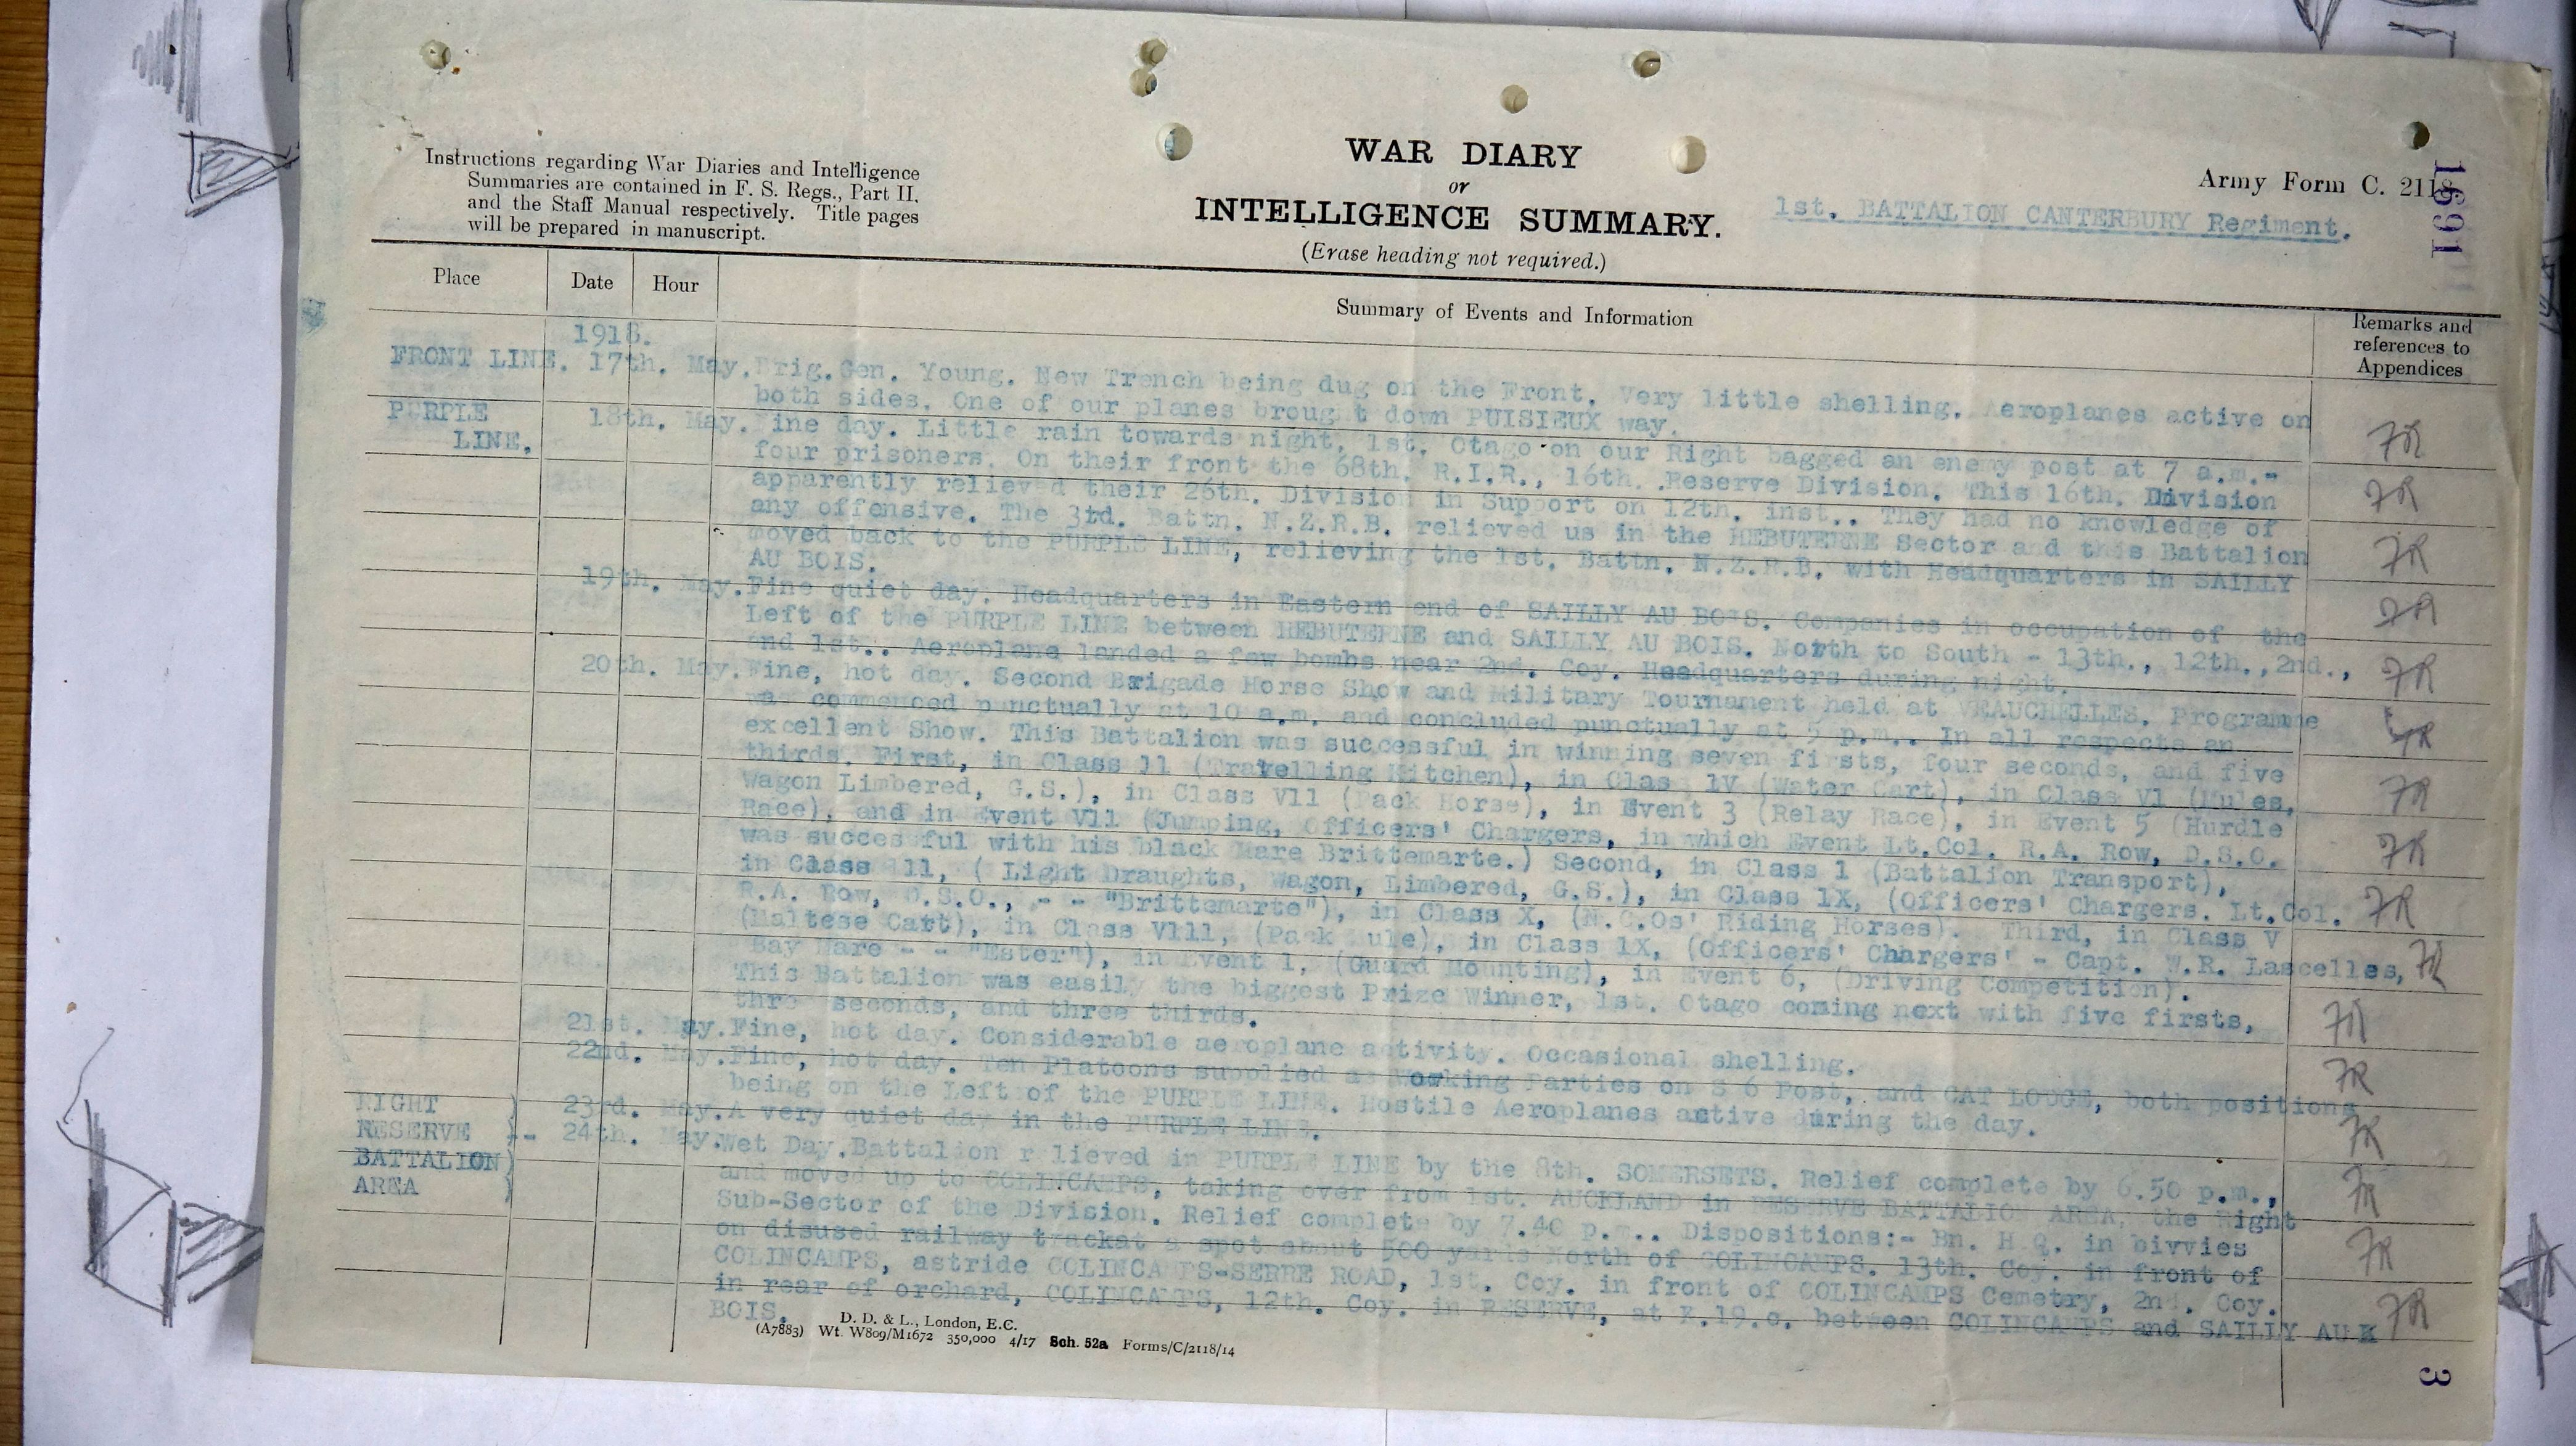 Instructions regarding War Diaries and Intelligence
Summaries are contained in F. S. Regs., Part II.
and the Staff Manual respectively. Title pages
will be prepared in manuscript.
WAR DIARY
or
INTELLIGENCE SUMMARY.
(Erase heading not required.)
Army Form C. 2118.
1691
1st. BATTALION CANTERBURY Regiment.
Place Date Hour Summary of Events and Information Remarks and references to Appendices
1918.
FRONT LINE. 17th. May. Brig.Gen. Young. New Trench being dug on the Front. Very little shelling. Aeroplanes active on
both sides. One of our planes brought down PUISIEUX way.
PURPLE LINE. 18th. May. Fine day. Little rain towards night, 1st. Otago on our Right bagged an enemy post at 7 a.m.-
four prisoners. On their front the 68th. R.I.R., 16th. Reserve Division. This 16th. Division
apparently relieved their 26th. Division in Support on 12th. inst.. They had no knowledge of
any offensive. The 3td. Battn. N.Z.R.B. relieved us in the HEBUTERNE Sector and this Battalion
moved back to the PURPLE LINE, relieving the 1st. Battn. N.Z.R.B. with Headquarters in SAILLY
AU BOIS.
19th. May. Fine quiet day. Headquarters in Eastern end of SAILLY AU BOIS. Companies in occupation of the
Left of the PURPLE LINE between HEBUTERNE and SAILLY AU BOIS. North to South - 13th., 12th., 2nd.,
and 1st.. Aeroplane landed a few bombs near 2nd. Coy. Headquarters during night.
20th. May. Fine, hot day. Second Brigade Horse Show and Military Tournament held at VEAUCHELLES. Programme
was commenced punctually at 10 a.m. and concluded punctually at 5 p.m.. In all respects an
excellent Show. This Battalion was successful in winning seven firsts, four seconds, and five
thirds. First, in Class 11 (Travelling Kitchen), in Class 1V (Water Cart), in Class V1 (Mules,
Wagon Limbered, G.S.), in Class V11 (Pack Horse), in Event 3 (Relay Race), in Event 5 (Hurdle
Race), and in Event V11 (Jumping, Officers' Chargers, in which Event Lt.Col. R.A. Row, D.S.O.
was successful with his black Mare Brittemarte.) Second, in Class 1 (Battalion Transport),
in Class 111, ( Light Draughts, Wagon, Limbered, G.S.), in Class 1X, (Officers' Chargers. Lt.Col.
R.A. Row, D.S.O., - - "Brittemarte"), in Class X, (N.C.Os' Riding Horses). Third, in Class V
(Maltese Cart), in Class V111, (Pack Mule), in Class 1X, (Officers' Chargers' - Capt. W.R. Lascelles,
Bay Mare - - "Ester"), in Event 1, (Guard Mounting), in Event 6, (Driving Competition).
This Battalion was easily the biggest Prize Winner, 1st. Otago coming next with five firsts,
three seconds, and three thirds.
21st. May. Fine, hot day. Considerable aeroplane activity. Occasional shelling.
22nd. May. Fine, hot day. Ten Platoons supplied as Working Parties on S 6 Post, and CAT LODGE, both positions
being on the Left of the PURPLE LINE. Hostile Aeroplanes active during the day.
23rd. May. A very quiet day in the PURPLE LINE.
RIGHT RESERVE BATTALION AREA )- 24th. May. Wet Day. Battalion relieved in PURPLE LINE by the 8th. SOMERSETS. Relief complete by 6.50 p.m.,
and moved up to COLINCAMPS, taking over from 1st. AUCKLAND in RESERVE BATTALION AREA, the Right
Sub-Sector of the Division. Relief complete by 7.40 p.m.. Dispositions:- Bn. H Q. in bivvies
on disused railway trackat a spot about 500 yards North of COLINCAMPS. 13th. Coy. in front of
COLINCAMPS, astride COLINCAMPS-SERRE ROAD, 1st. Coy. in front of COLINCAMPS Cemetry, 2nd. Coy.
in rear of orchard, COLINCAMPS, 12th. Coy. in RESERVE, at K.19.c. between COLINCAMPS and SAILLY AU
BOIS.
D. D. & L., London, E.C.
(A7883) Wt. W809/M1672 350,000 4/17 Sch. 52a Forms/C/2118/14
3